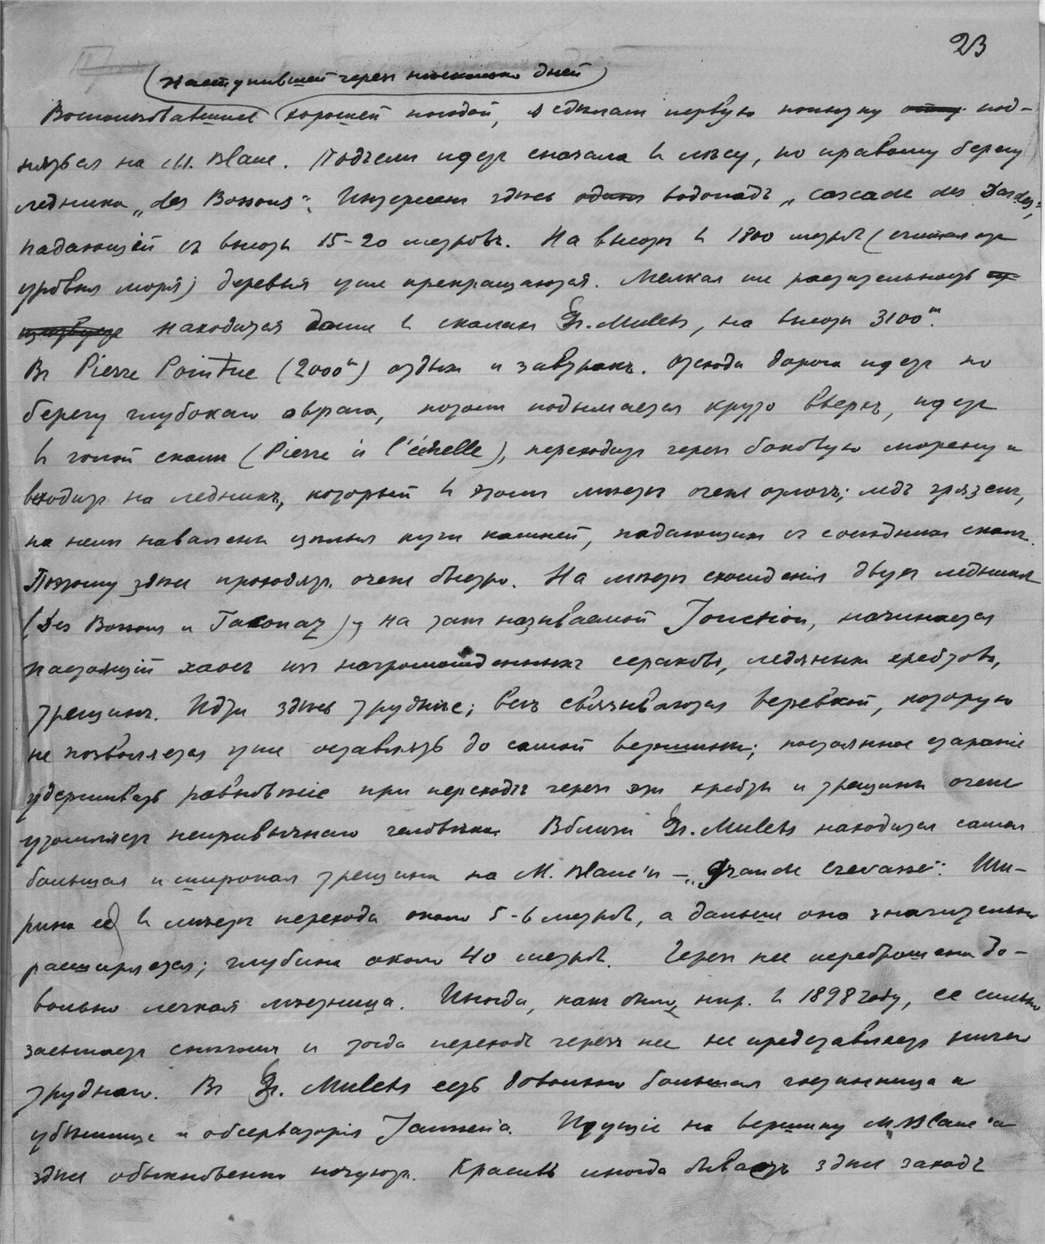 23
(наступившей через несколько дней)
Воспользовавшись хорошей погодой, я сделалъ первую попытку под-
няться на M. Blanc. Подъемъ идетъ сначала въ лѣсу, по правому берегу
ледника „des Bossons“. Интересенъ здѣсь водопадъ „cascade des Dardes“,
падающій съ высоты 15-20 метровъ. На высотѣ въ 1800 метровъ (считая отъ
уровня моря) деревья уже прекращаются. Мелкая же растительность
находится даже въ скалахъ Gr. Mulets, на высотѣ 3100 m.
Въ Pierre Pointue (2000 m) отдыхъ и завтракъ. Отсюда дорога идетъ по
берегу глубокаго оврага, потомъ подымается круто вверхъ, идетъ
къ голой скалѣ (Pierre à l'échelle), переходитъ черезъ боковую морену и
входитъ на ледникъ, который въ этомъ мѣстѣ очень отлогъ; ледъ грязенъ,
на немъ навалены цѣлыя кучи камней, падающихъ съ сосѣднихъ скалъ.
Поэтому здѣсь проходятъ очень быстро. На мѣстѣ схожденія двухъ ледниковъ
(Des Bossons и Taconaz), на такъ называемой Jonction, начинается
настоящій хаосъ изъ нагроможденныхъ сераковъ, ледяныхъ хребтовъ,
трещинъ. Идти здѣсь труднѣе; всѣ связываются веревкой, которую
не позволяется уже оставлять до самой вершины; постоянное стараніе
удерживать равновѣсіе при переходѣ черезъ эти хребты и трещины очень
утомляетъ непривычнаго человѣка. Вблизи Gr. Mulets находится самая
большая и широкая трещина на M. Blanc'ѣ – „Grande Crevasse“. Ши-
рина ея въ мѣстѣ перехода около 5-6 метровъ, а дальше она значительно
расширяется; глубина около 40 метровъ. Черезъ нее переброшена до-
вольно легкая лѣстница. Иногда, какъ было, напр. въ 1898 году, ее сильно
засыпаетъ снѣгомъ и тогда переходъ черезъ нее не представляетъ ничего
труднаго. Въ Gr. Mulets есть довольно большая гостинница и
убѣжище и обсерваторія Janssen'a. Идущіе на вершину M. Blanc'a
здѣсь обыкновенно ночуютъ. Красивъ иногда бываетъ здѣсь заходъ